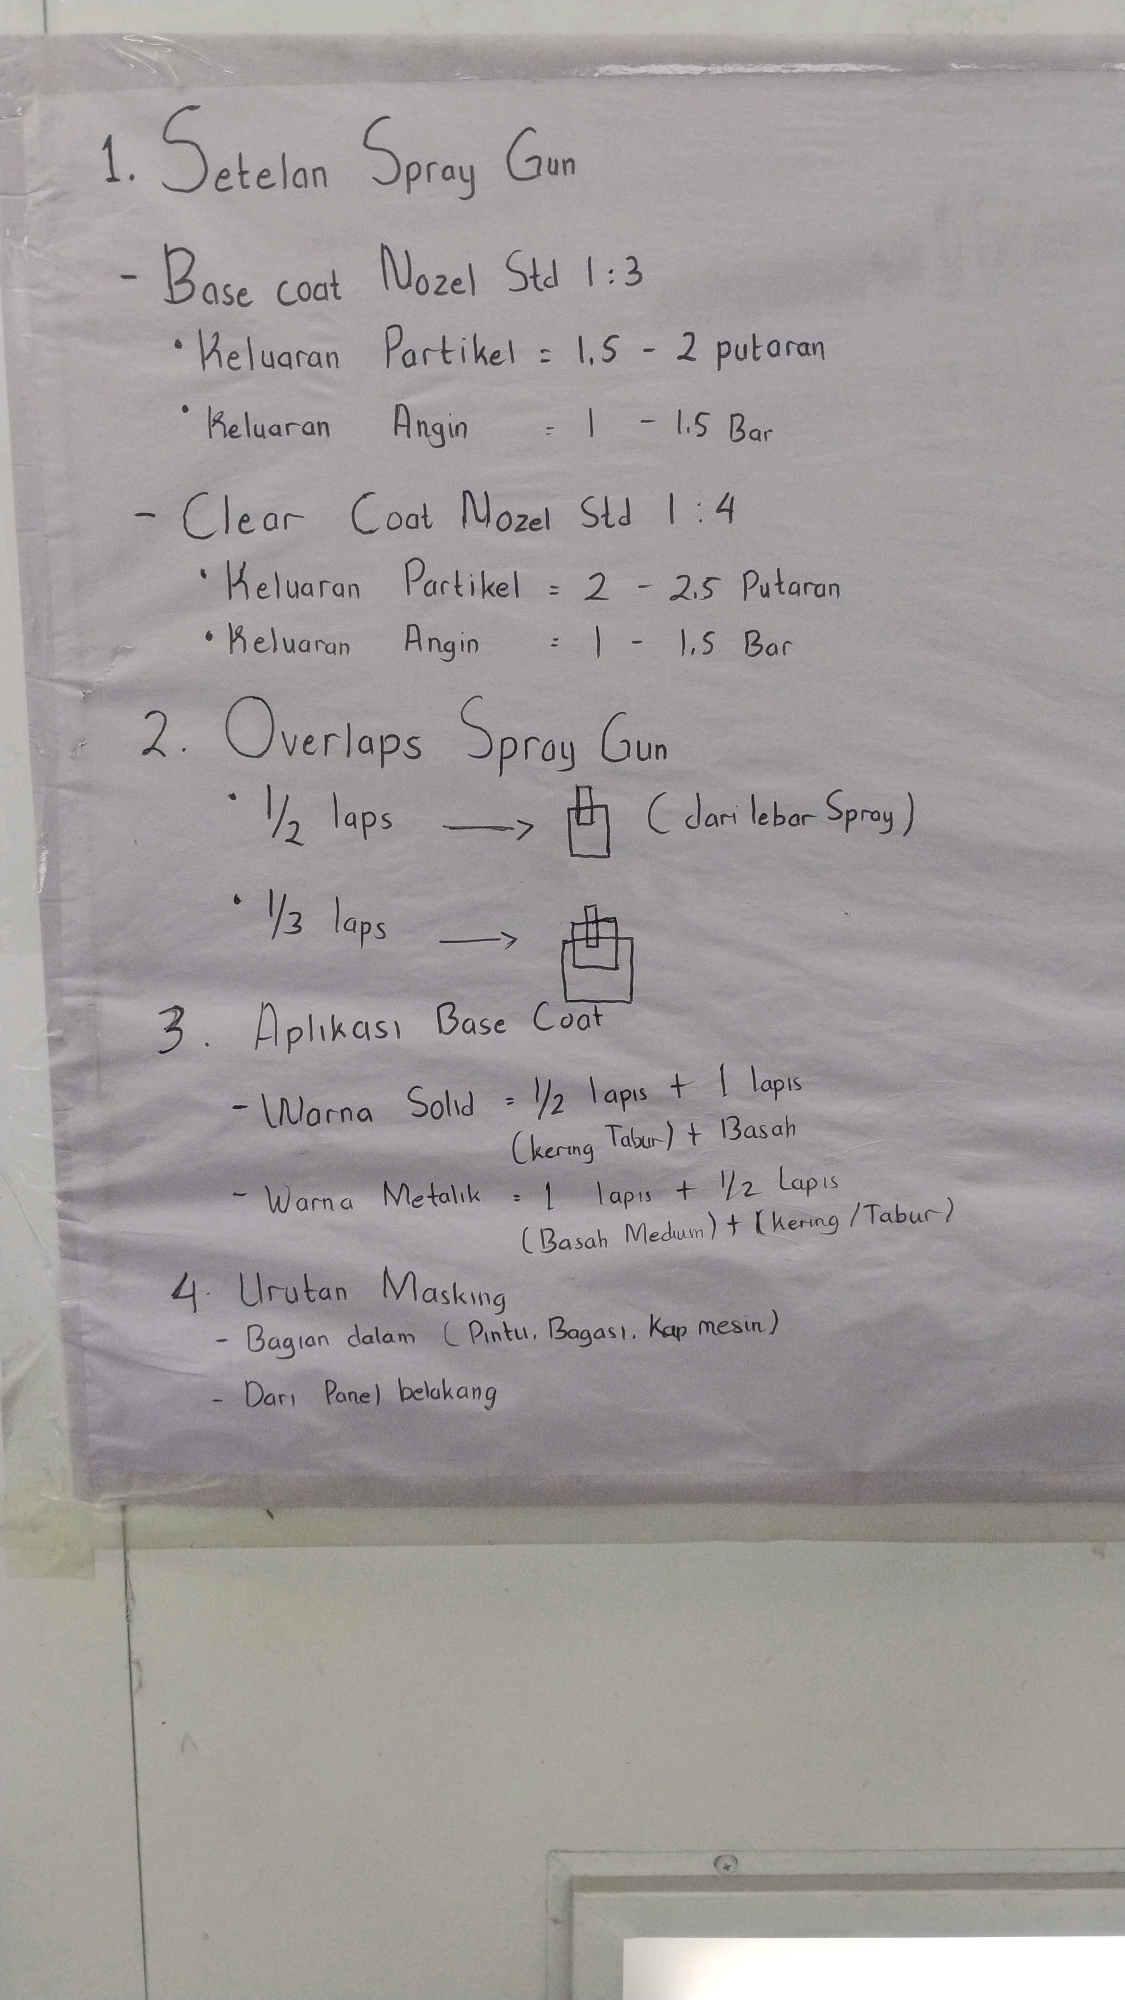 1. Setelan Spray Gun
- Base coat Nozel Std 1:3
• Keluaran Partikel = 1.5 - 2 putaran
• Keluaran Angin = 1 - 1.5 Bar
- Clear Coat Nozel Std 1:4
• Keluaran Partikel = 2 - 2.5 Putaran
• Keluaran Angin = 1 - 1.5 Bar
2. Overlaps Spray Gun
• 1/2 laps → (dari lebar Spray)
• 1/3 laps →
3. Aplikasi Base Coat
- Warna Solid = 1/2 lapis + 1 lapis
(kering Tabur) + Basah
- Warna Metalik = 1 lapis + 1/2 Lapis
(Basah Medium) + (Kering/Tabur)
4. Urutan Masking
- Bagian dalam (Pintu, Bagasi, Kap mesin)
- Dari Panel belakang